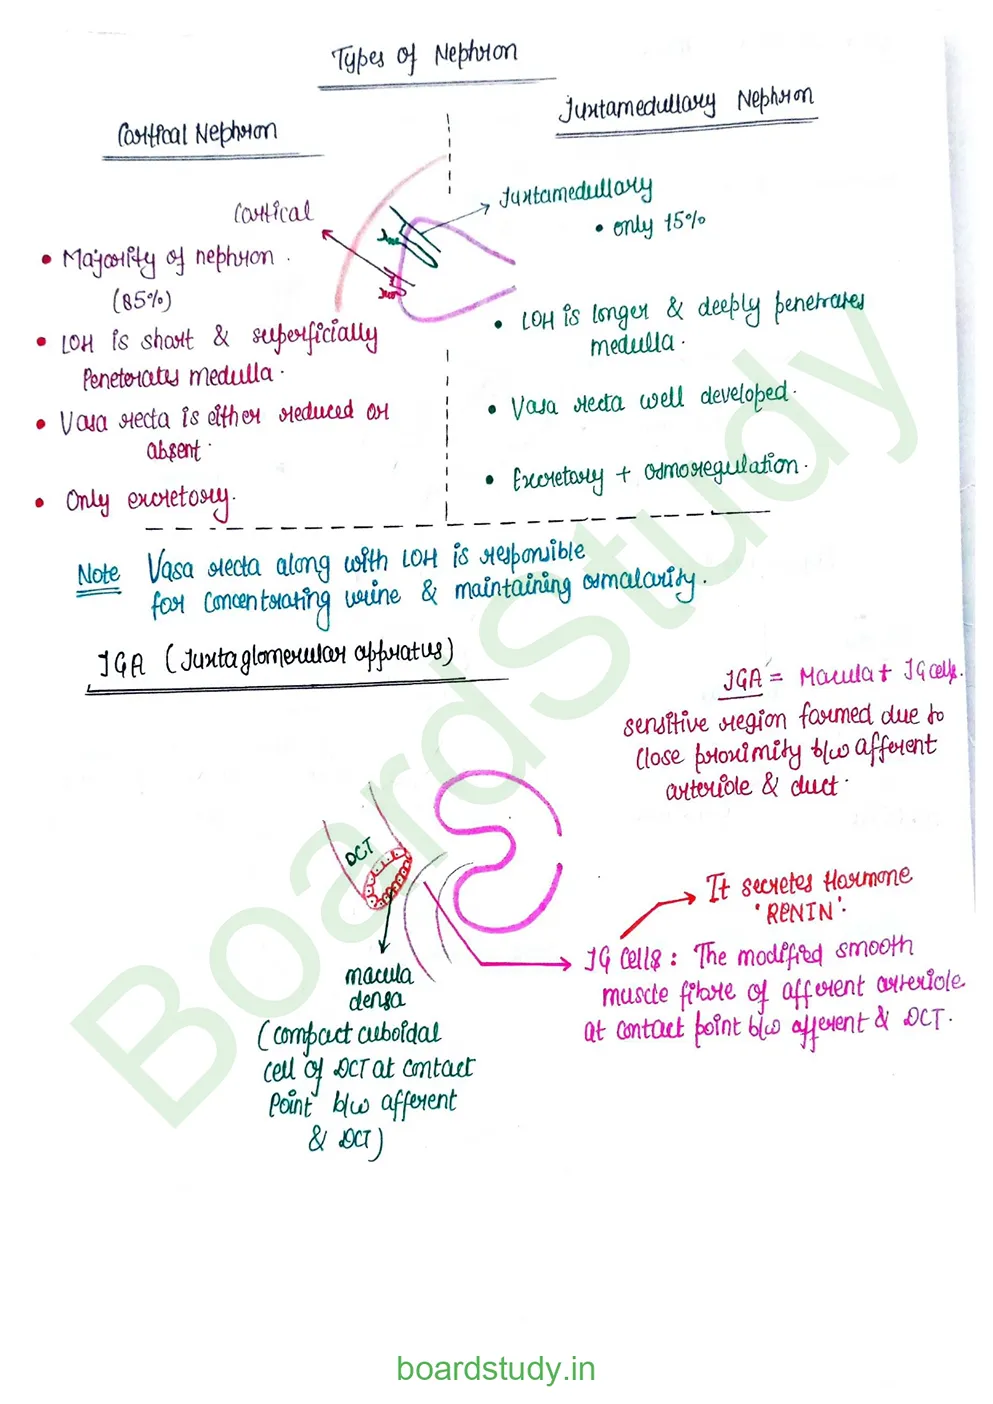 Types of Nephron
Cortical Nephron
Juxtamedullary Nephron
Cortical
Juxtamedullary
• only 15%
• Majority of nephron.
(85%)
• LOH is short & superficially
Peneterates medulla.
• Vasa recta is either reduced or
absent.
• Only excretory.
• LOH is longer & deeply penetrates
medulla.
• Vasa recta well developed.
• Excretory + osmoregulation.
Note Vasa recta along with LOH is responsible
for concentrating urine & maintaining osmalarity.
JGA (Juxtaglomerular appratus)
JGA = Macula + JG cells.
sensitive region formed due to
close proximity b/w afferent
arteriole & duct.
DCT
It secretes Hormone
'RENIN'.
JG Cells : The modified smooth
muscle fibre of afferent arteriole
at contact point b/w afferent & DCT.
macula
densa
(compact cuboidal
cell of DCT at contact
Point b/w afferent
& DCT)
BoardStudy
boardstudy.in